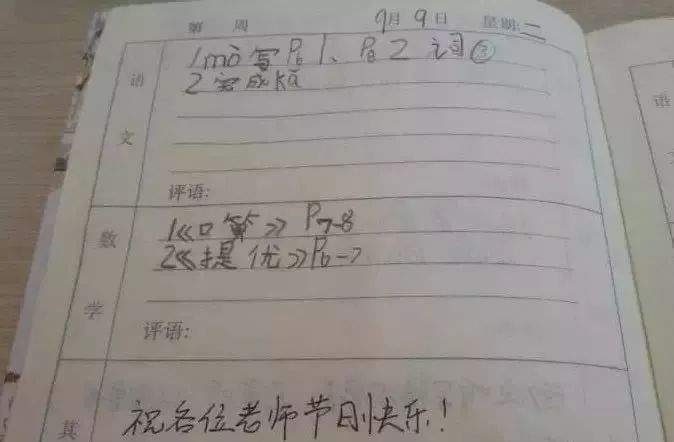 第 周 9月9日 星期:二
语文
1mò写P61、P62词②
2完成kǎ
评语:
数学
1《口算》P7-8
2《提优》P6-7
评语:
其
祝各位老师节刚快乐!
语